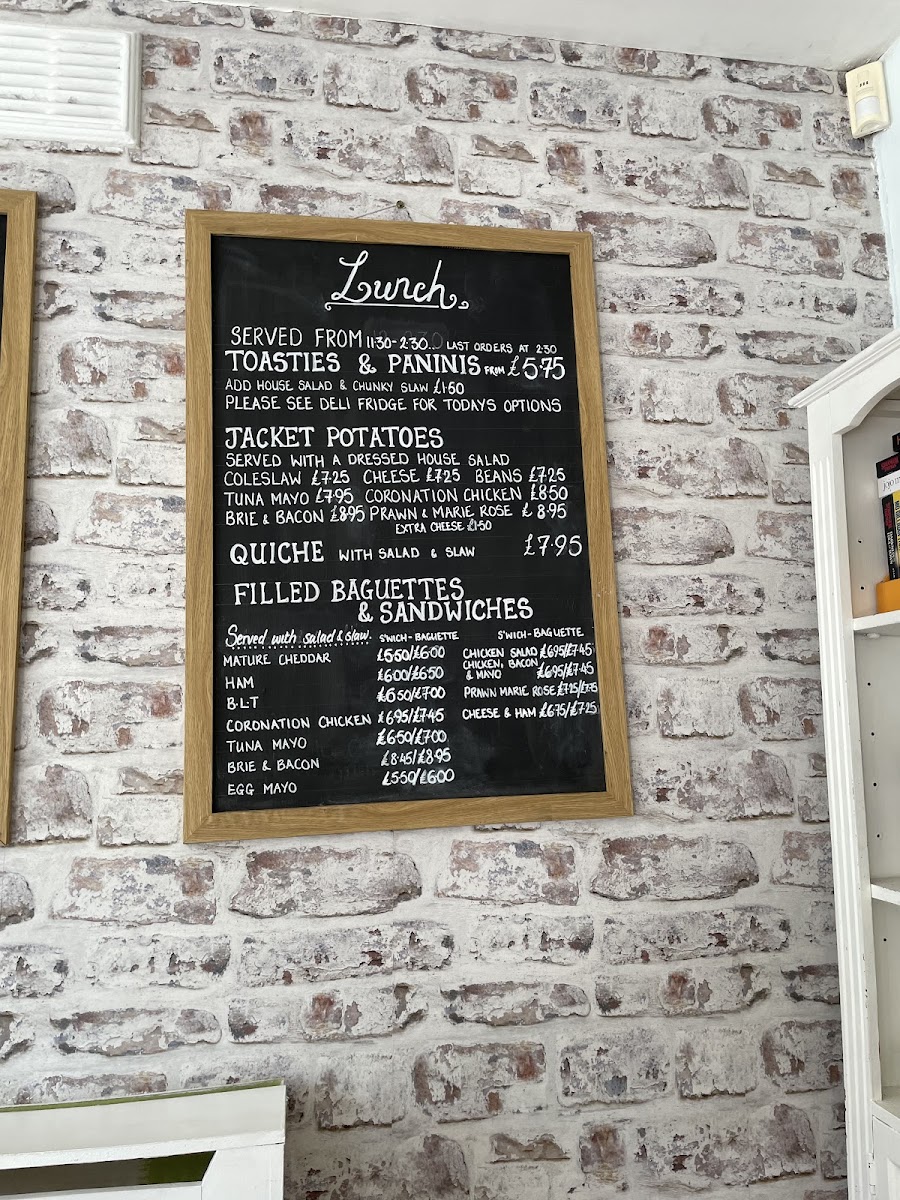 Lunch
SERVED FROM 11:30-2:30... LAST ORDERS AT 2:30
TOASTIES & PANINIS FROM £5.75
ADD HOUSE SALAD & CHUNKY SLAW £1.50
PLEASE SEE DELI FRIDGE FOR TODAYS OPTIONS
JACKET POTATOES
SERVED WITH A DRESSED HOUSE SALAD
COLESLAW £7.25 CHEESE £7.25 BEANS £7.25
TUNA MAYO £7.95 CORONATION CHICKEN £8.50
BRIE & BACON £8.95 PRAWN & MARIE ROSE £8.95
EXTRA CHEESE £1.50
QUICHE WITH SALAD & SLAW £7.95
FILLED BAGUETTES
& SANDWICHES
Served with salad & slaw. S'WICH-BAGUETTE
MATURE CHEDDAR £5.50/£6.00
HAM £6.00/£6.50
B.L.T £6.50/£7.00
CORONATION CHICKEN £6.95/£7.45
TUNA MAYO £6.50/£7.00
BRIE & BACON £8.45/£8.95
EGG MAYO £5.50/£6.00
S'WICH-BAGUETTE
CHICKEN SALAD £6.95/£7.45
CHICKEN, BACON
& MAYO £6.95/£7.45
PRAWN MARIE ROSE £7.25/£7.75
CHEESE & HAM £6.75/£7.25